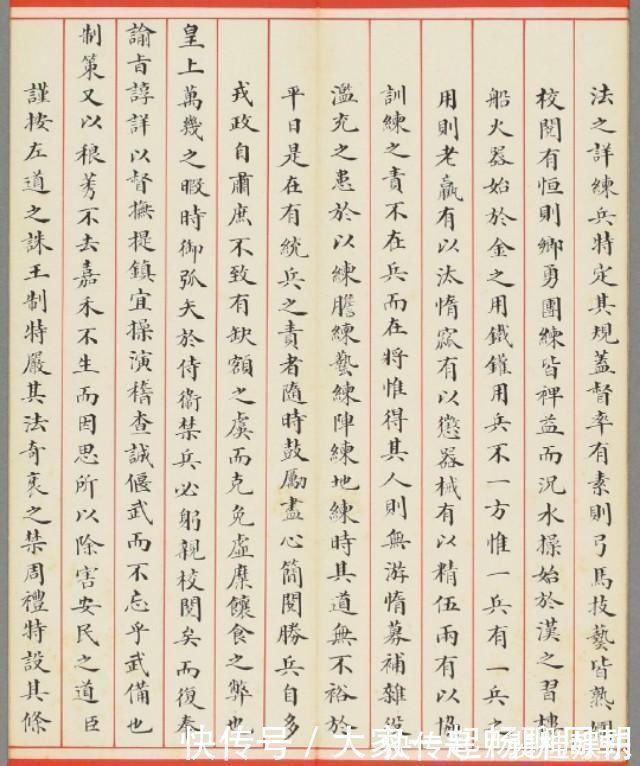 法之詳練兵特定其規蓋督率有素則弓馬技藝皆熟圍
校閱有恒則鄉勇團練皆裨益而況水操始於漢之習樓
船火器始於金之用鐵鑵用兵不一方惟一兵有一兵之
用則老羸有以汰惰窳有以懲器械有以精伍兩有以協
訓練之責不在兵而在將惟得其人則無游惰募補雜
濫充之患於以練膽練藝練陣練地練時其道無不裕於
平日是在有統兵之責者隨時鼓勵盡心簡閱勝兵自多
戎政自肅庶不致有缺額之虞而克免虛糜饟食之弊也
皇上萬幾之暇時御弧矢於侍衛禁兵必躬親校閱矣而復奉
諭旨諄詳以督撫提鎮宜操演稽查誠偃武而不忘乎武備也
制策又以稂莠不去嘉禾不生而因思所以除害安民之道臣
謹按左道之誅王制特嚴其法奇衺之禁周禮特設其條
快传号/大